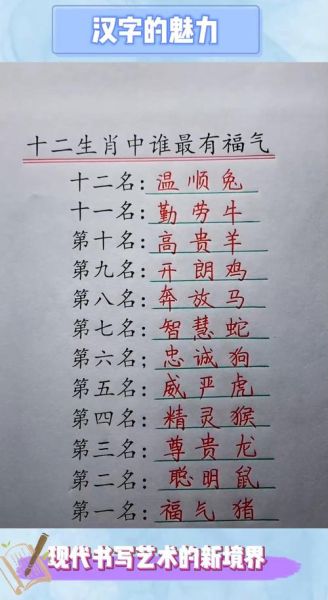 汉字的魅力
十二生肖中谁最有福气
十二名：温顺兔
十一名：勤劳牛
第十名：高贵羊
第九名：开朗鸡
第八名：奔放马
第七名：智慧蛇
第六名；忠诚狗
第五名：威严虎
第四名：精灵猴
第三名：尊贵龙
第二名：聪明鼠
第一名：福气猪
现代书写艺术的新境界